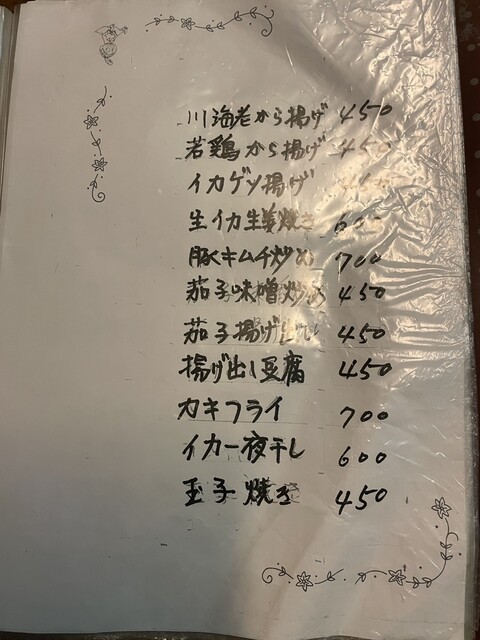 川海老から揚げ 450
若鶏から揚げ 450
イカゲソ揚げ
生イカ生姜焼き 600
豚キムチ炒め 700
茄子味噌炒め 450
茄子揚げ出し 450
揚げ出し豆腐 450
カキフライ 700
イカ一夜干し 600
玉子焼き 450